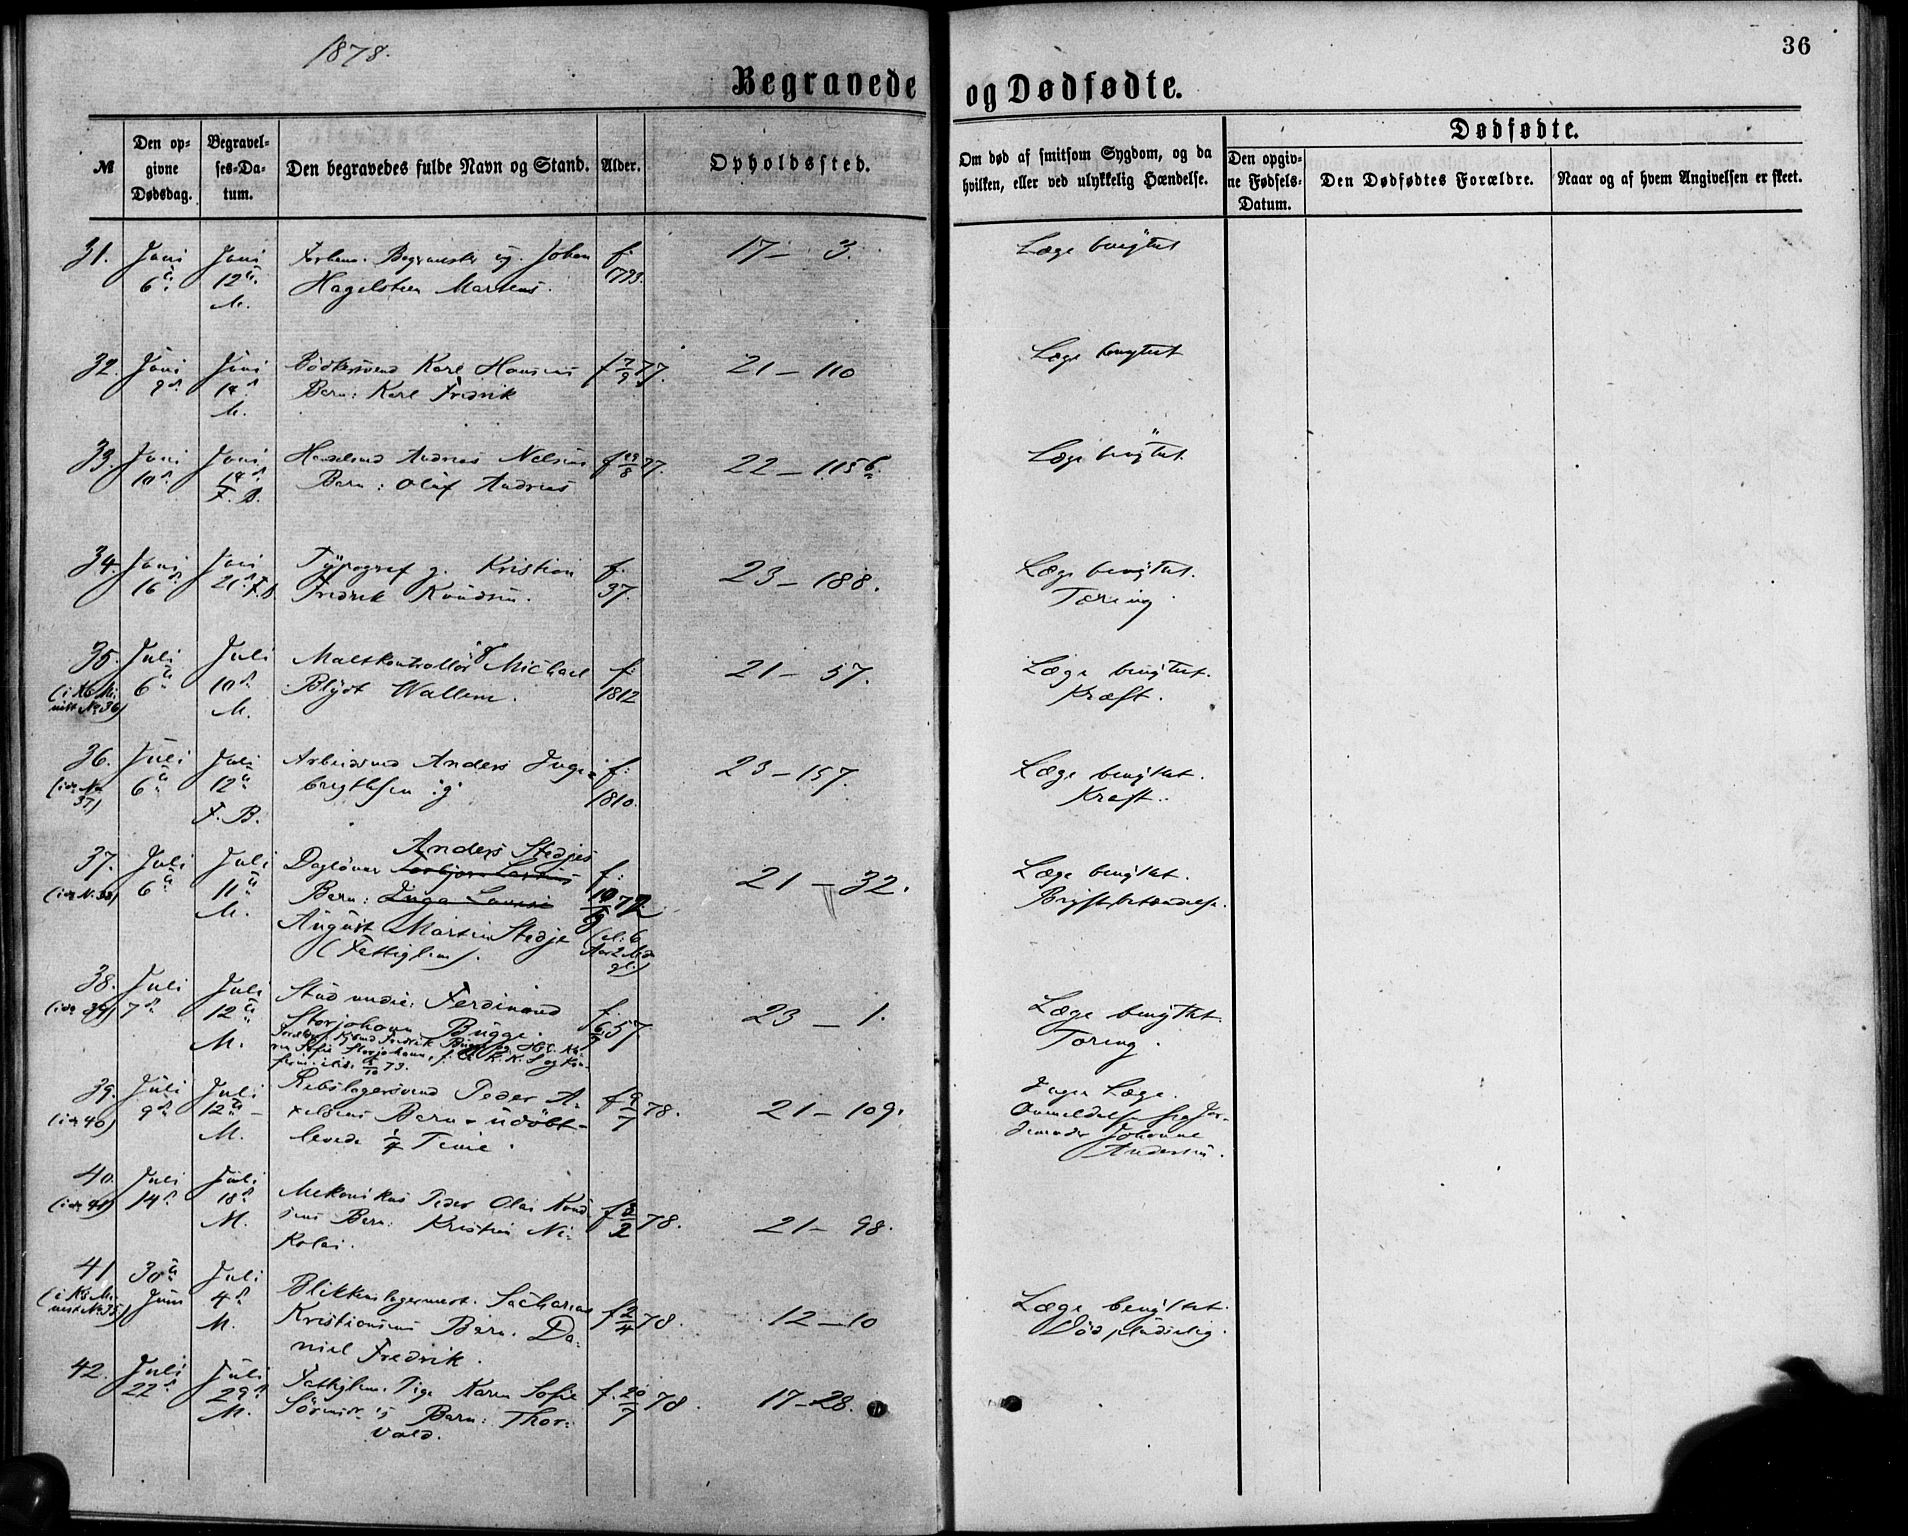 1878.
36
Begravede og Dødfødte.
№
Den op-
givne
Dødsdag.
Begravel-
ses-Da-
tum.
Den begravedes fulde Navn og Stand.
Alder.
Opholdssted.
Om død af smitsom Sygdom, og da
hvilken, eller ved ulykkelig Hændelse.
Dødfødte.
Den opgiv-
ne Fødsels-
Datum.
Den Dødfødtes Forældre.
Naar og af hvem Angivelsen er skeet.
31. Juni 6 Juni 12 M.
Johan
Hagelsteen Martens.
f. 1793.
17 – 3.
Læge benyttet
32. Juni 9 Juni 14 M.
Bødkersvend Karl Hansens
Barn: Karl Fredrik
f 7/9 77.
21 – 110
Læge benyttet
33. Juni 10 Juni 14 F. B.
Andreas Nelsens
Barn: Oluf Andreas
f 29/8 77.
22 – 115 b.
Læge benyttet.
34. Juni 16 Juni 21 F. B.
Typograf g. Kristian
Fredrik Knudsen.
f. 37.
23 – 188.
Læge benyttet.
Tæring.
35. (i Kb. Mi-
nist No 36) Juli 6 Juli 10 M.
Maltkontrollør g Michael
Blydt Wallem.
f. 1812
21 – 57.
Læge benyttet.
Kræft.
36. (i do No 37) Juli 6 Juli 12 F. B.
Arbeidsmd Anders Inge-
brigtsen g
f. 1810.
23 – 157.
Læge benyttet.
Kræft.
37. (i do N. 38) Juli 6 Juli 11 M.
Anders Stedjes
Dagløner Torbjørn Larsens
Barn: Inga Lovise
August Martin Stedje
(Fattiglem).
f. 10/9 72
21 – 32.
Læge benyttet.
Brystbetændelse.
38. (i do 39) Juli 7 Juli 12 M.
Stud. Ferdinand
Storjohann Bugge.
f. 57.
23 – 1.
Læge benyttet.
Tæring.
39. (i do 40) Juli 9 Juli 12 M.
Rebslagersvend Peder A-
xelsens Barn – udøbt –
levede 1/4 Time.
f 9/7 78.
21 – 109.
Ingen Læge.
Anmeldelse fra Jor-
demoder Johanne
Andersen.
40. (i do 41) Juli 14 Juli 18 M.
Mekanikus Peder Olai Knud-
sens Barn: Kristian Ni-
kolai.
f 3/2 78.
21 – 98.
41. (i Kb. Mi-
nist No 35) 30 Juni Juli 4 M.
Blikkenslagermest. Sacharias
Kristiansens Barn. Da-
niel Fredrik.
f 2/4 78.
12 – 10
Læge benyttet.
Død pludselig.
42. Juli 22 Juli 29 M.
Fattiglem. Pige Karen Sofie
Barn: Thor-
vald.
f. 20/7 78.
17 – 28.